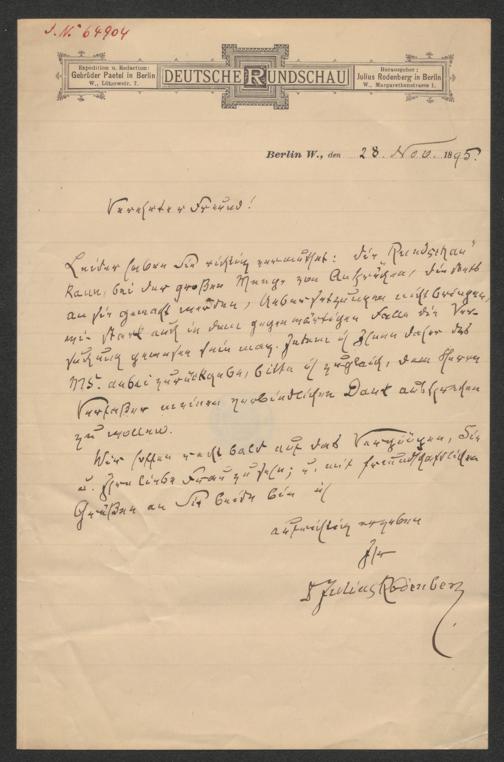 J. N. 64904
Expedition u. Redaction:
Gebrüder Paetel in Berlin
W., Lützowstr. 7.
DEUTSCHE RUNDSCHAU
Herausgeber:
Julius Rodenberg in Berlin
W., Margarethenstrasse 1.
Berlin W., den 28. Nov. 1895.
Verehrter Freund!
Leider haben Sie richtig vermuthet: die „Rundschau“
kann, bei der großen Menge von Ansprüchen, die stets
an sie gemacht werden, Uebersetzungen nicht bringen,
wie stark auch in dem gegenwärtigen Falle die Ver-
suchung gewesen sein mag. Indem ich Ihnen daher das
MS. anbei zurückgebe, bitte ich zugleich, dem Herrn
Verfasser meinen verbindlichen Dank aussprechen
zu wollen.
Wir hoffen recht bald auf das Vergnügen, Sie
u. Ihre liebe Frau zu sehen; u. mit freundschaftlichen
Grüßen an Sie beide bin ich
aufrichtig ergeben
Ihr
Dr Julius Rodenberg